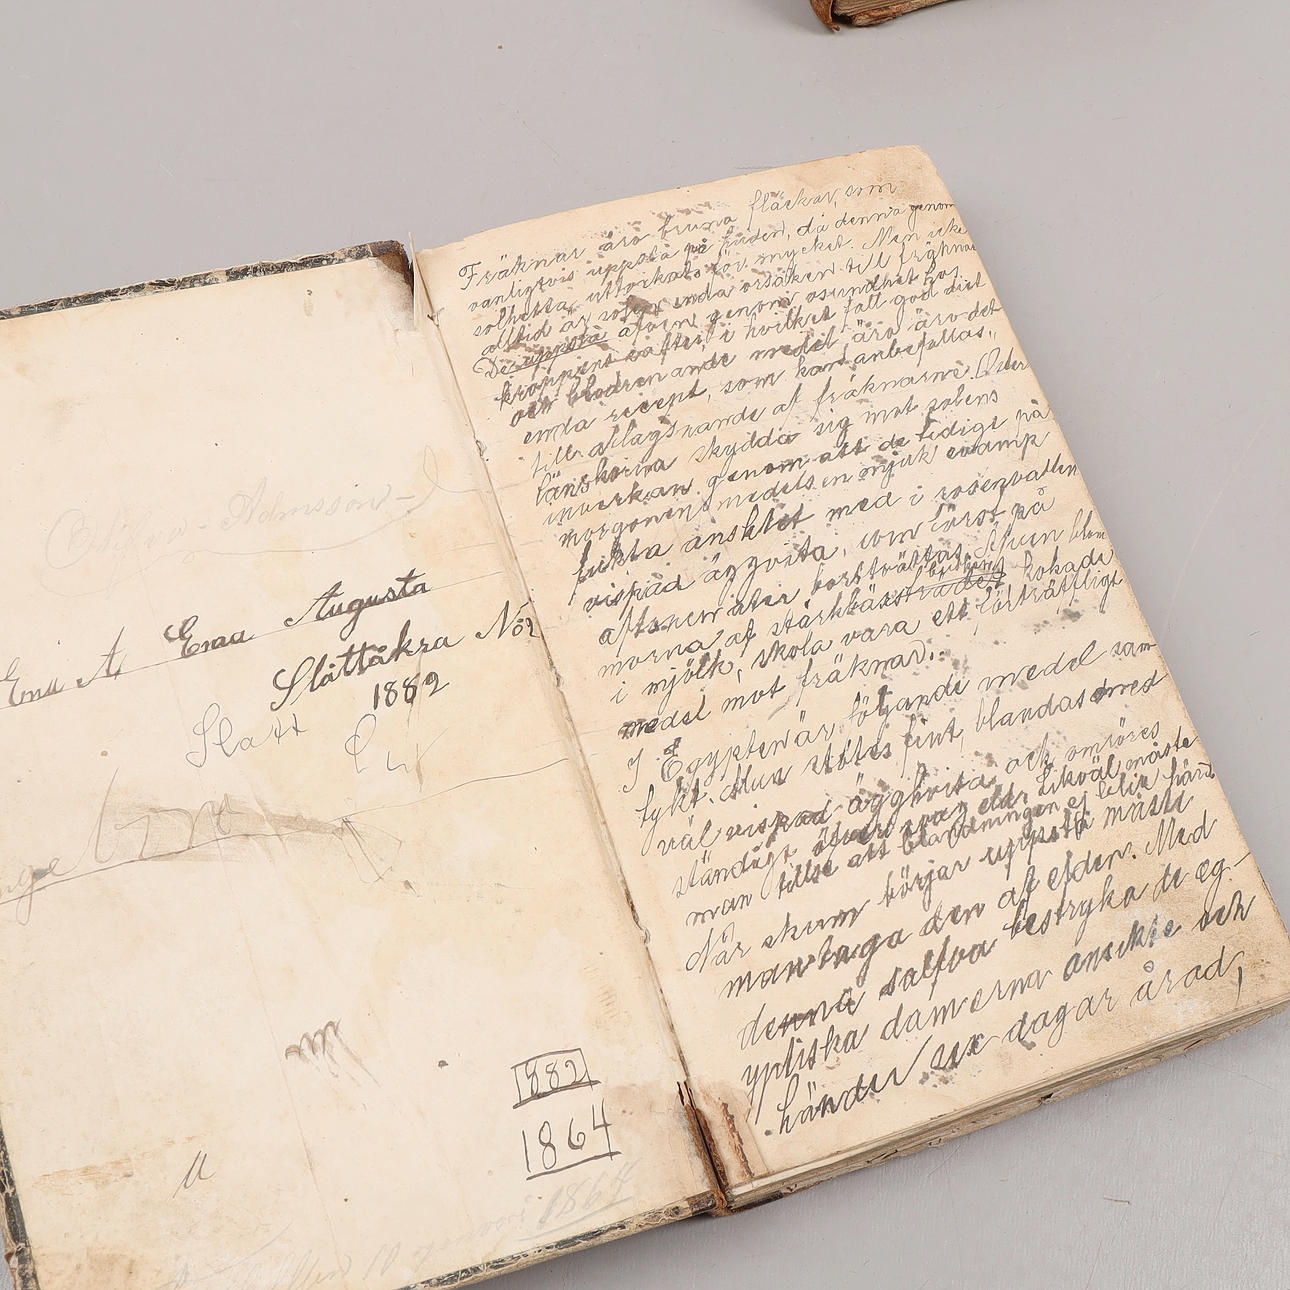 Ema A. Ema Augusta
Slättåkra No2
1882
Slatt
1882
1864
1864
Fräknar äro bruna fläckar, som
vanligtvis uppstå på huden, då denna genom
solhetta uttorkats för mycket. Men icke
alltid är solen enda orsaken till fräknar
De uppstå äfven genom osundhet hos
kroppens safter, i hvilket fall god diet
och blodrenande medel äro äro det
enda recept, som kan anbefallas.
till aflägsnande af fräknarne. Öster
länskorna skydda sig mot solens
inverkan genom att de tidigt på
morgonen medels en mjuk svamp
fukta ansiktet med i rosenvatten
vispad äggvita, som först på
aftonen åter borttvättas. Äfven blom
morna af kokade
i mjölk, skola vara ett förträffligt
medel mot fräknar.
I Egypten är följande medel sam
fint, blandas med
väl vispad ägghvita och omröres
ständigt öfver svag eld. Likväl måste
man tillse att blandningen ej blir hård
När skum börjar uppstå måste
man taga den af elden. Med
denna salfva bestryka de eg-
yptiska damerna ansikte och
händer sex dagar å rad,